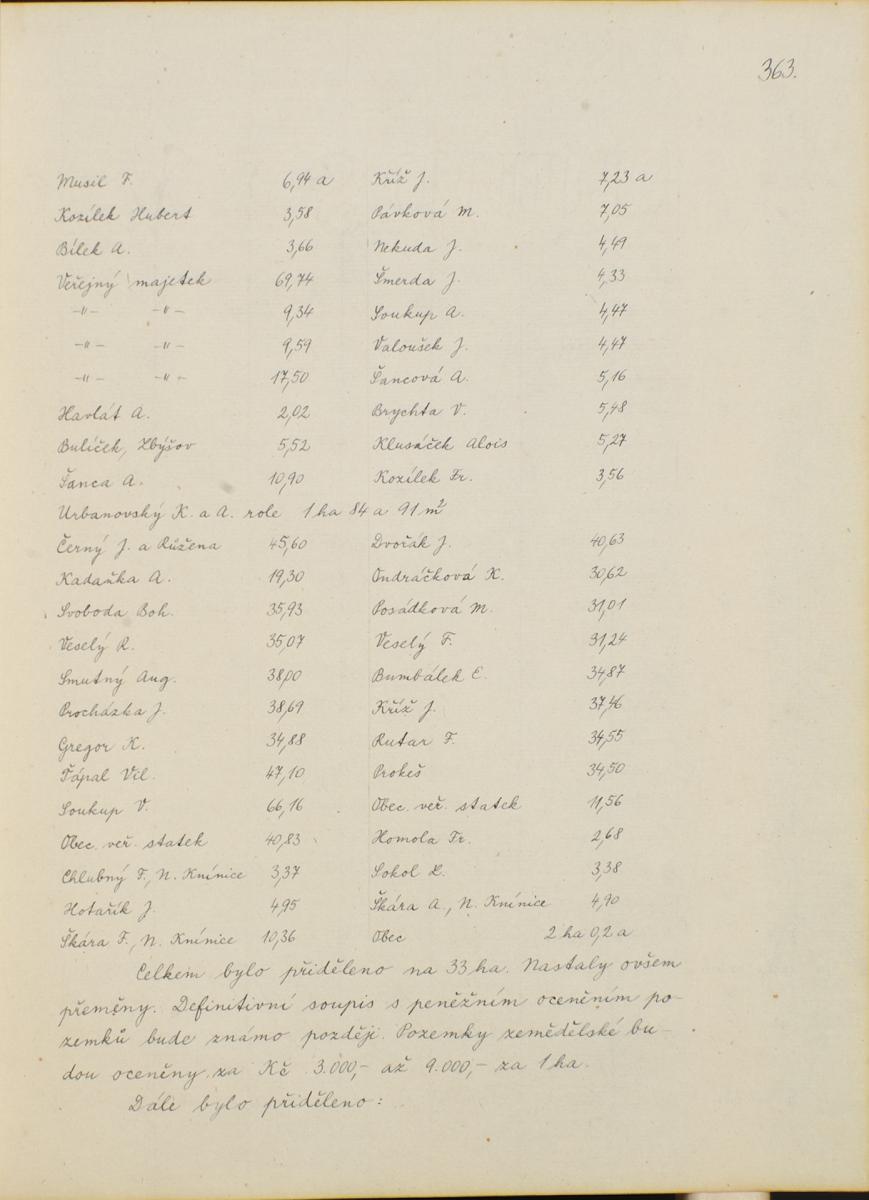 363.
Musil F. 6,94 a Kříž J. 7,23 a
Kozílek Hubert 3,58 Pávková M. 7,05
Bílek A. 3,66 Nekuda J. 4,49
Veřejný majetek 69,74 Šmerda J. 4,33
-"- -"- 9,34 Soukup A. 4,47
-"- -"- 9,59 Valoušek J. 4,47
-"- -"- 17,50 Šancová A. 5,16
Havlát A. 2,02 Brychta V. 5,48
Bulíček, Zbýšov 5,52 Klusáček Alois 5,27
Šanca A. 10,90 Kozílek Fr. 3,56
Urbanovský K. a A. role 1 ha 84 a 91 m²
Černý J. a Růžena 45,60 Dvořák J. 40,63
Kadaňka A. 19,30 Ondráčková K. 30,62
Svoboda Boh. 35,93 Posádková M. 31,01
Veselý R. 35,07 Veselý F. 31,24
Smutný Aug. 38,00 Bumbálek E. 34,87
Procházka J. 38,69 Kříž J. 37,46
Gregor K. 34,88 Rutar F. 34,55
Ťápal Vil. 47,10 Prokeš 34,50
Soukup V. 66,16 Obec. veř. statek 11,56
Obec. veř. statek 40,83 Homola Fr. 2,68
Chlubný F., N. Knínice 3,37 Sokol L. 3,38
Hotařík J. 4,95 Škára A., N. Knínice 4,90
Škára F., N. Knínice 10,36 Obec 2 ha 0,2 a
Celkem bylo přiděleno na 33 ha. Nastaly ovšem
přeměny. Definitivní soupis s peněžním oceněním po-
zemků bude známo později. Pozemky zemědělské bu-
dou oceněny za Kč 3.000,- až 9.000,- za 1 ha.
Dále bylo přiděleno: